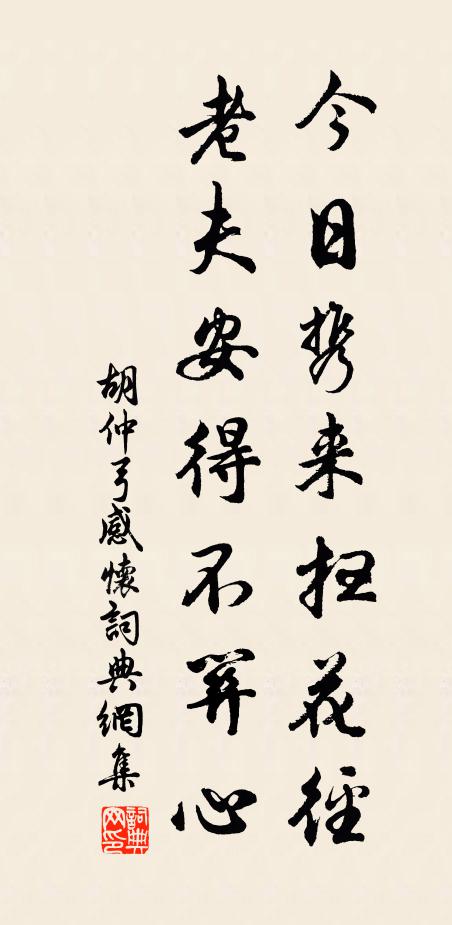 今日携来扫花径
老夫安得不关心
胡仲弓感懷詞典網集
詞典
网印